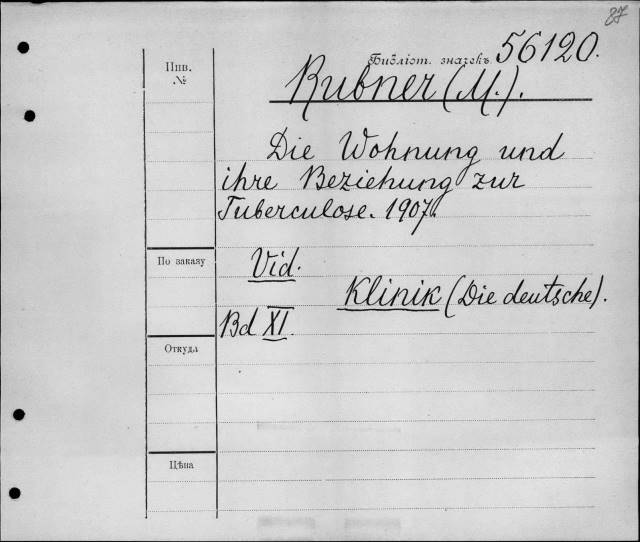 27
Инв.
№
Библіот. значекъ 56120.
Rubner (M.).
Die Wohnung und
ihre Beziehung zur
Tuberculose. 1907.
По заказу
Vid.
Klinik (Die deutsche).
Bd XI.
Откуда
Цѣна